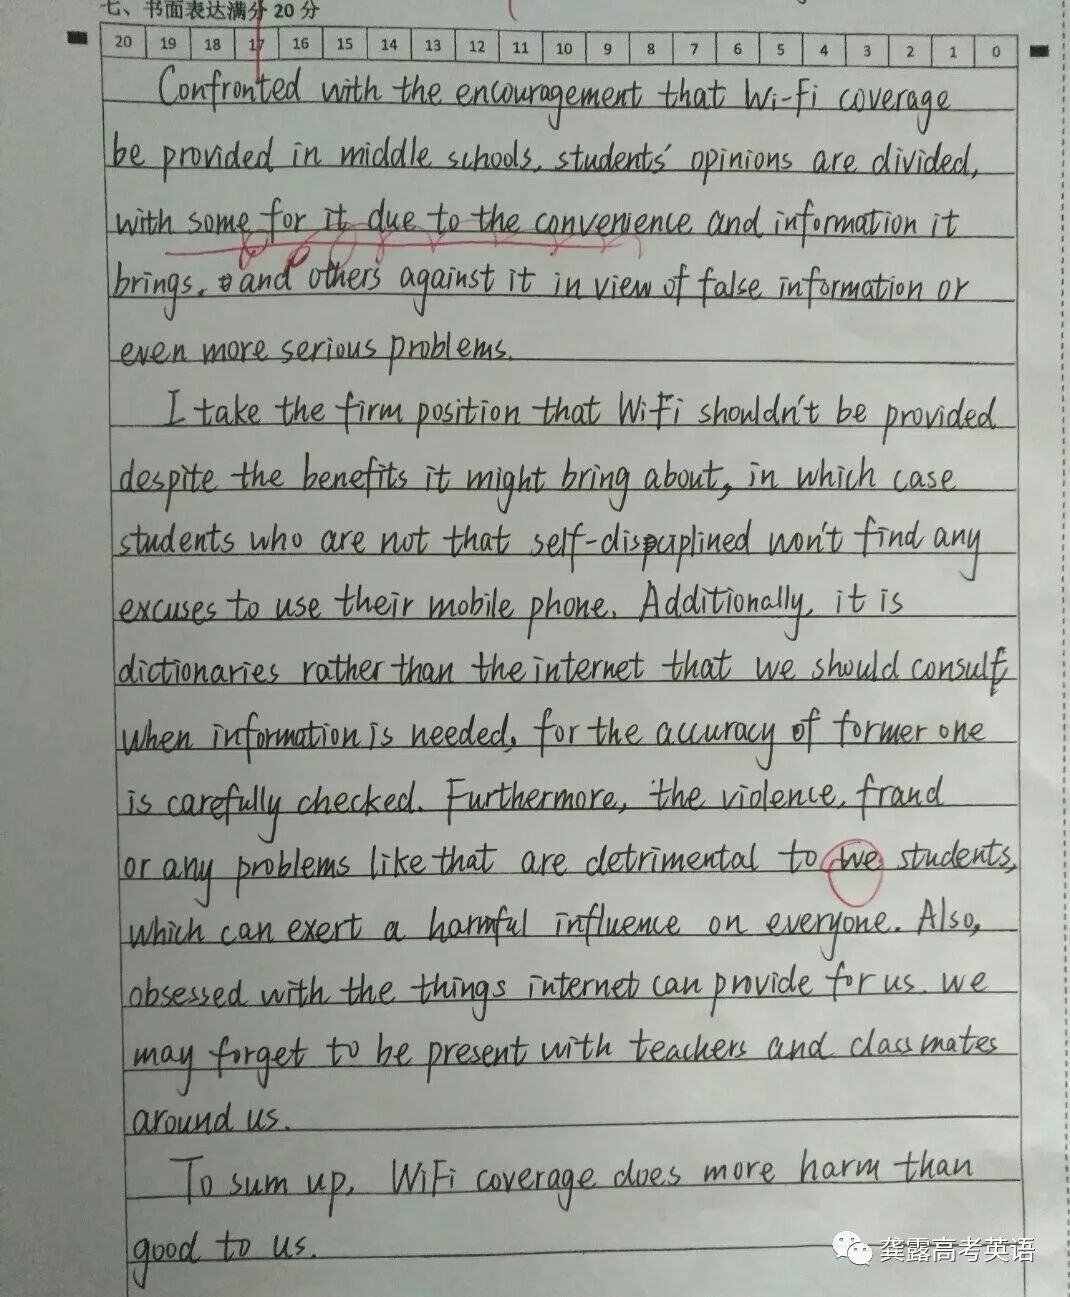 七、书面表达满分 20 分
20 19 18 17 16 15 14 13 12 11 10 9 8 7 6 5 4 3 2 1 0
Confronted with the encouragement that Wi-Fi coverage
be provided in middle schools, students' opinions are divided,
with some for it due to the convenience and information it
brings, and others against it in view of false information or
even more serious problems.
I take the firm position that WiFi shouldn't be provided
despite the benefits it might bring about, in which case
students who are not that self-disciplined won't find any
excuses to use their mobile phone. Additionally, it is
dictionaries rather than the internet that we should consult
when information is needed, for the accuracy of former one
is carefully checked. Furthermore, the violence, fraud
or any problems like that are detrimental to we students,
which can exert a harmful influence on everyone. Also,
obsessed with the things internet can provide for us. we
may forget to be present with teachers and classmates
around us.
To sum up, WiFi coverage does more harm than
good to us.
龚露高考英语